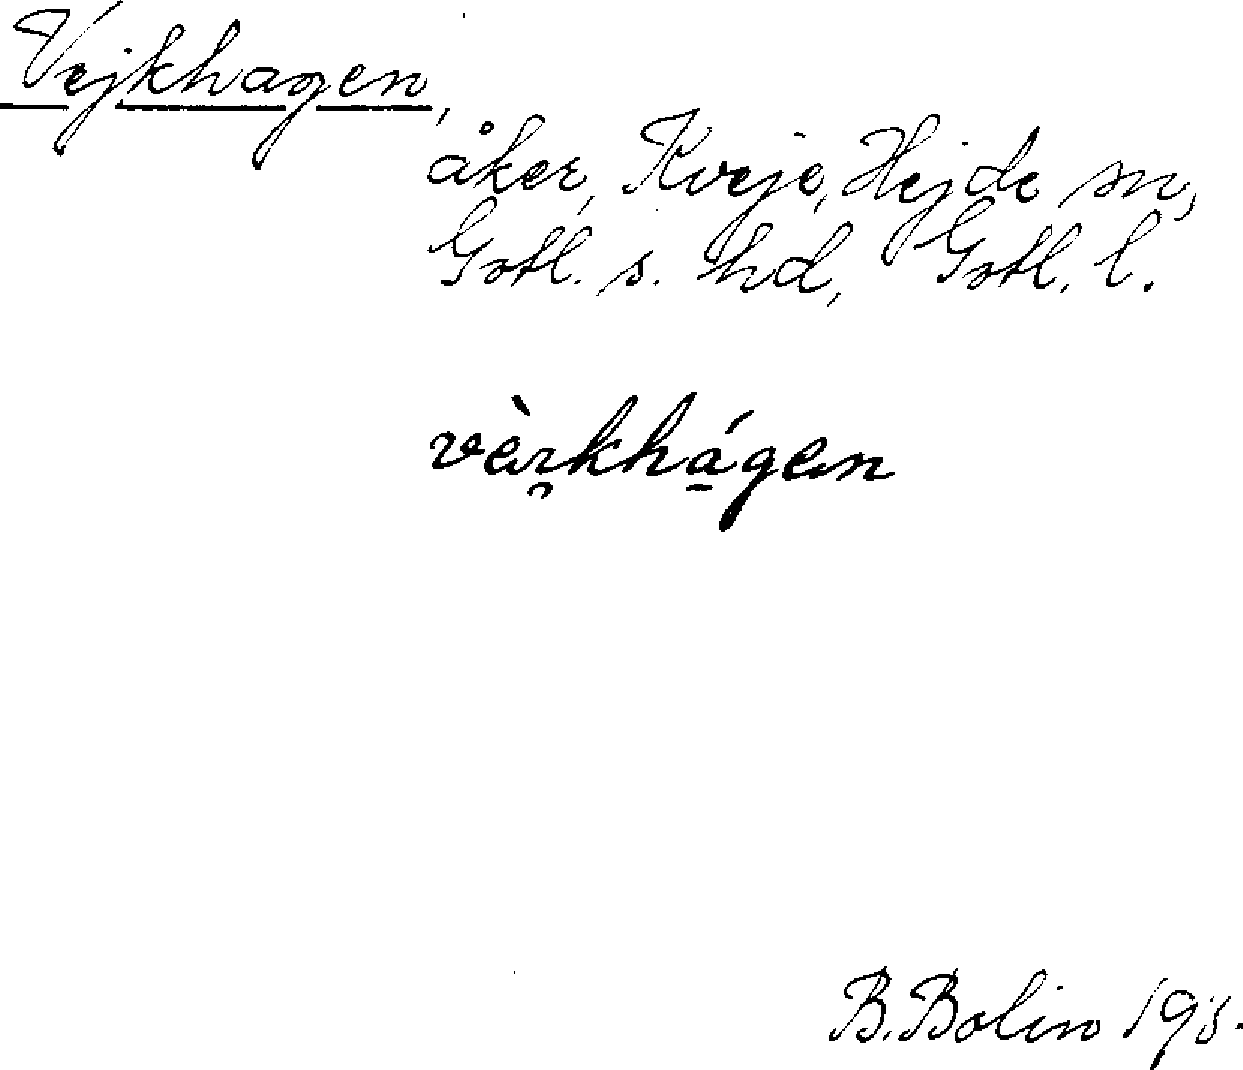 Vejkhagen,
åker, Kveje, Hejde sn,
Gotl. s. hd, Gotl. l.
vèi̯khá̱gen
B. Bolin